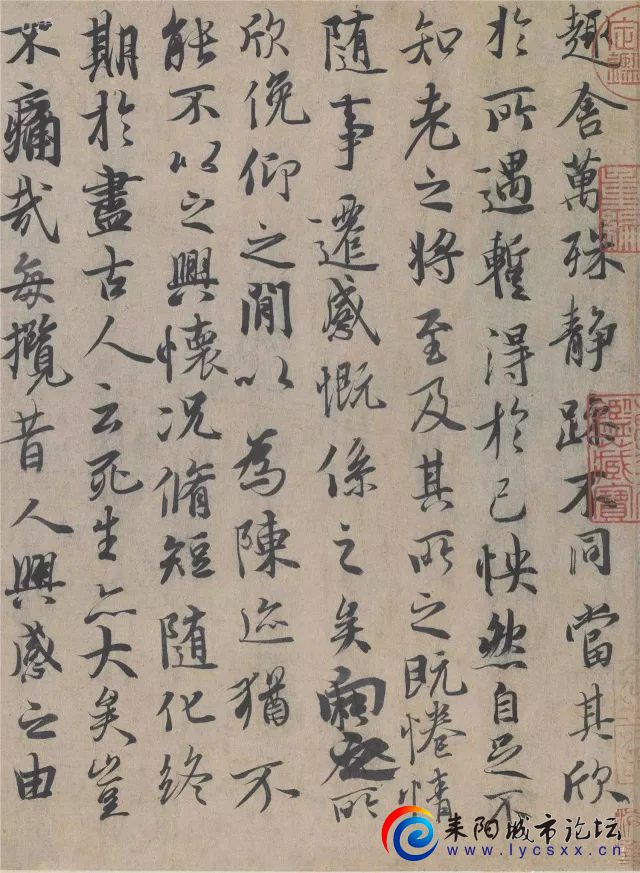 趣舍萬殊静躁不同當其欣
於所遇蹔得於己怏然自足不
知老之將至及其所之既惓情
随事遷感慨係之矣向之所
欣俛仰之閒以為陳迹猶不
能不以之興懷况脩短随化終
期於盡古人云死生亦大矣豈
不痛哉每攬昔人興感之由
耒阳城市论坛
www.lycsxx.cn